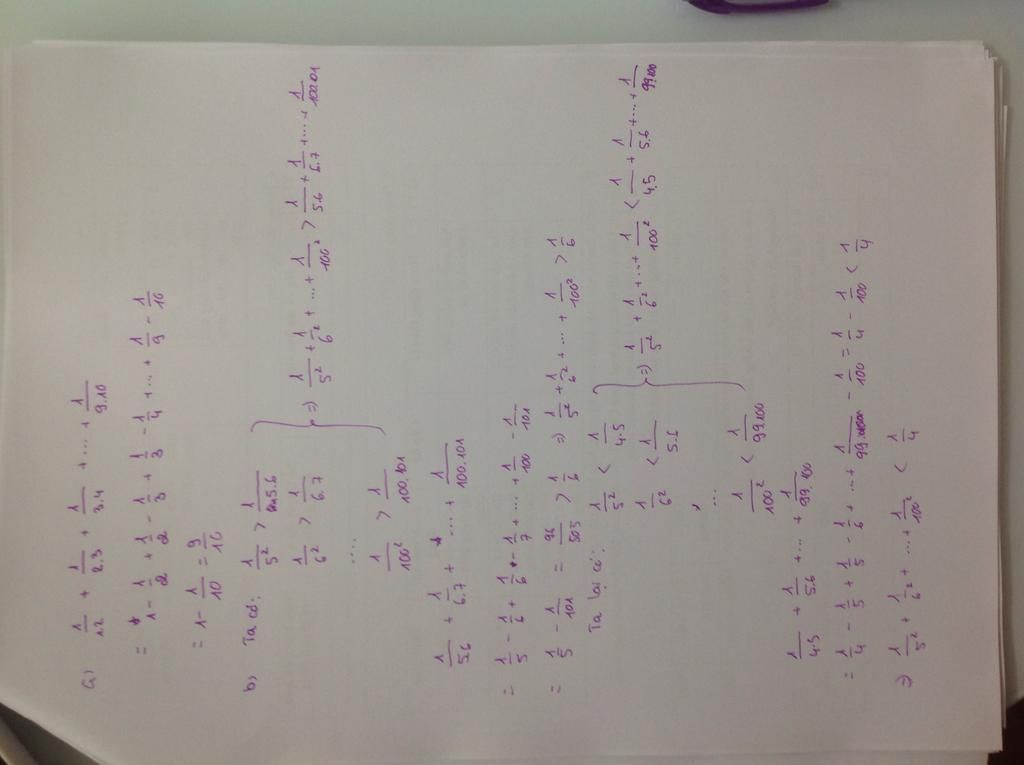 a) 1/1.2 + 1/2.3 + 1/3.4 + ... + 1/9.10
= 1 - 1/2 + 1/2 - 1/3 + 1/3 - 1/4 + ... + 1/9 - 1/10
= 1 - 1/10 = 9/10
b) Ta có: 1/5² > 1/5.6
1/6² > 1/6.7
....
1/100² > 1/100.101
=> 1/5² + 1/6² + ... + 1/100² > 1/5.6 + 1/6.7 + ... + 1/100.101
1/5.6 + 1/6.7 + ... + 1/100.101
= 1/5 - 1/6 + 1/6 - 1/7 + ... + 1/100 - 1/101
= 1/5 - 1/101 = 96/505 > 1/6 => 1/5² + 1/6² + ... + 1/100² > 1/6
Ta lại có: 1/5² < 1/4.5
1/6² < 1/5.6
, ...
1/100² < 1/99.100
=> 1/5² + 1/6² + ... + 1/100² < 1/4.5 + 1/5.6 + ... + 1/99.100
1/4.5 + 1/5.6 + ... + 1/99.100
= 1/4 - 1/5 + 1/5 - 1/6 + ... + 1/99 - 1/100 = 1/4 - 1/100 < 1/4
=> 1/5² + 1/6² + ... + 1/100² < 1/4